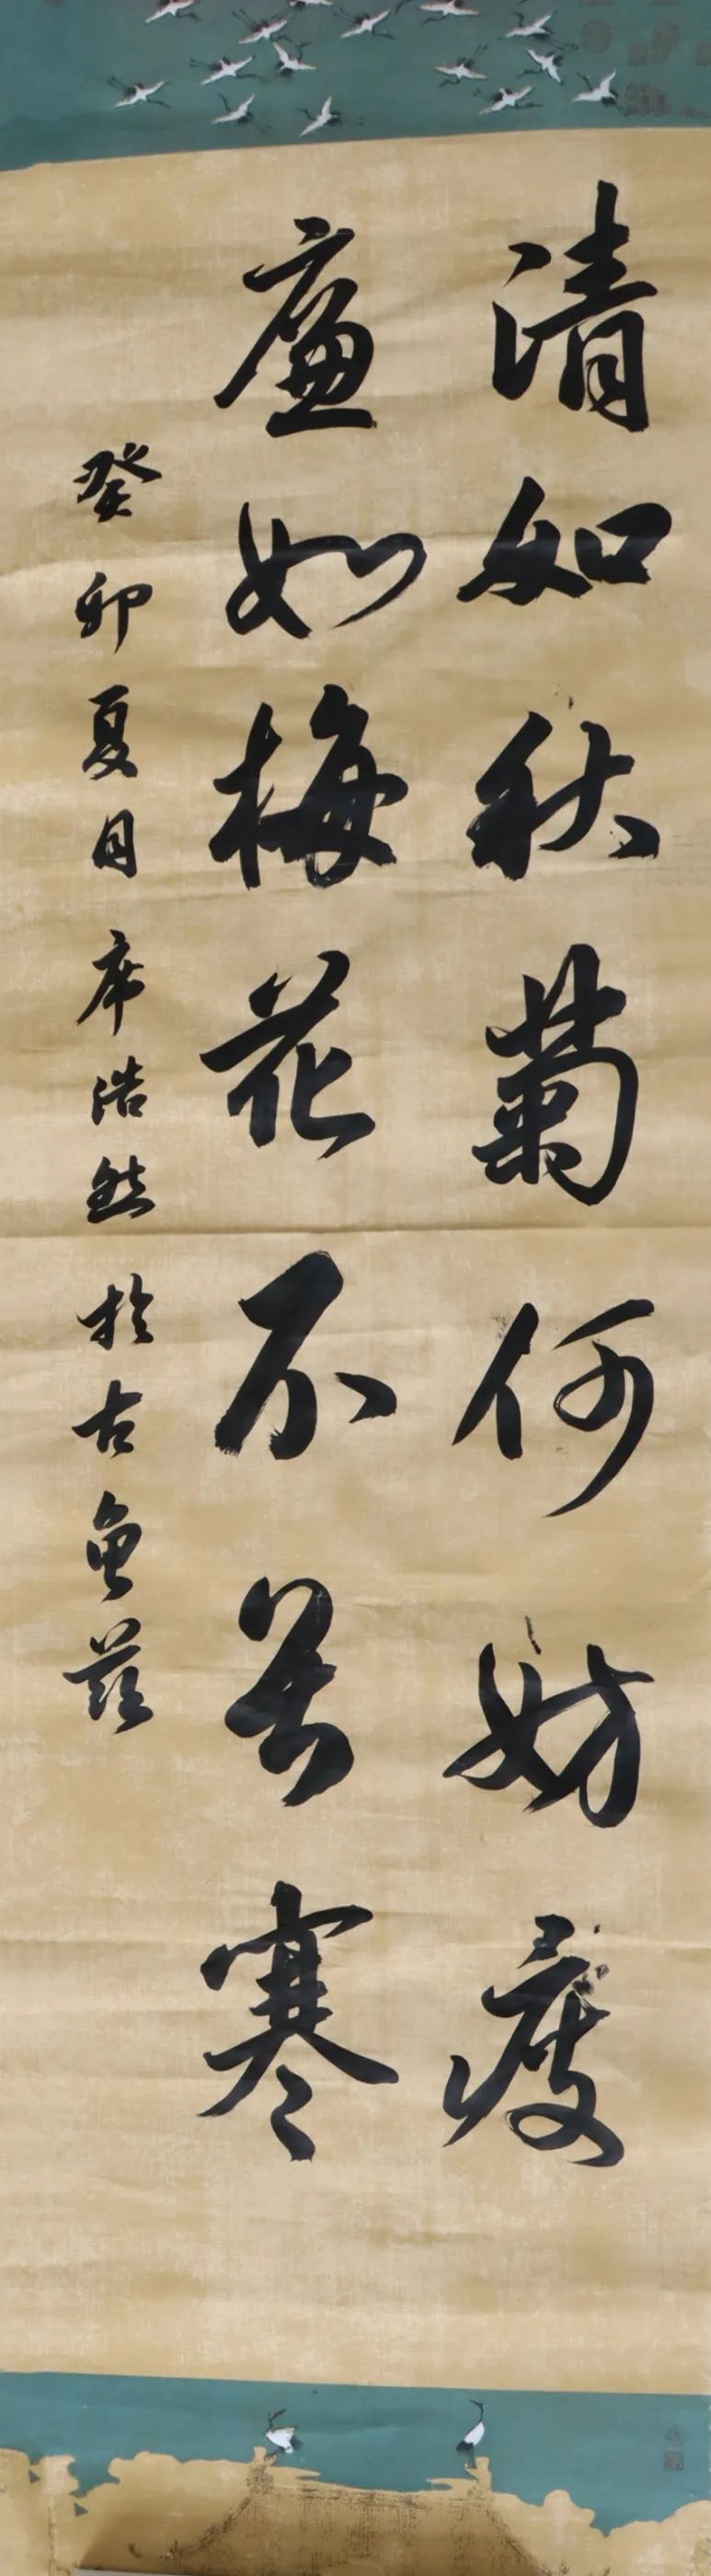 清如秋菊何妨瘦
廉如梅花不畏寒
癸卯夏月席浩然於古龟兹